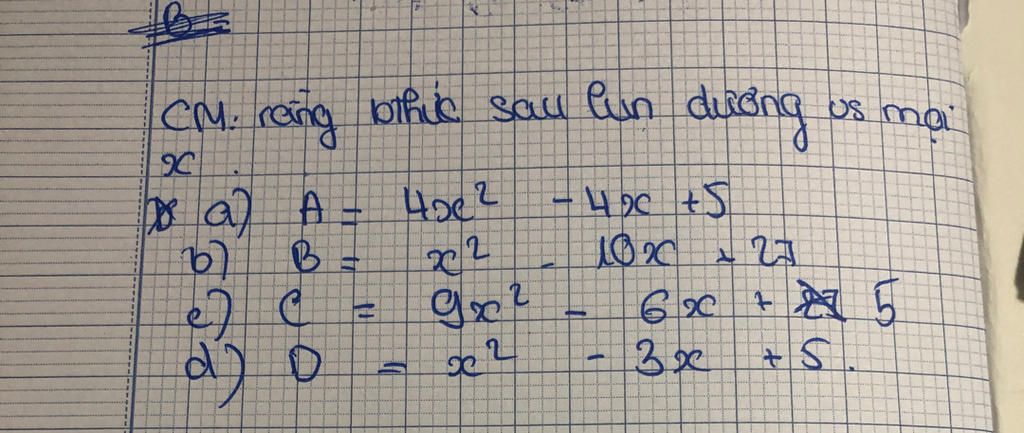 B
CM: rằng bthức sau lun dương vs mọi
x.
a) A = 4x² - 4x + 5
b) B = x² - 10x + 27
c) C = 9x² - 6x + 5
d) D = x² - 3x + 5.